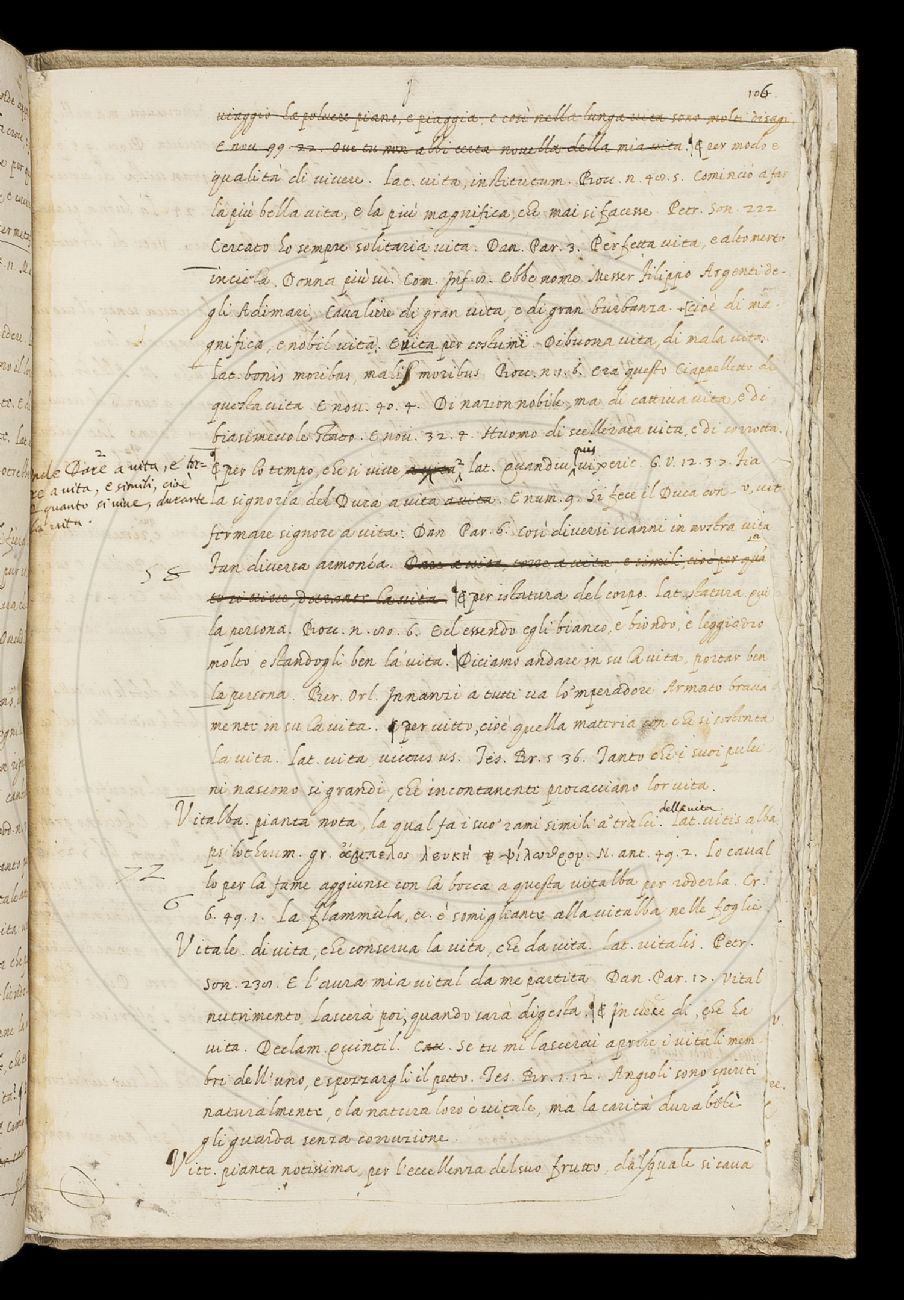 106
viaggio la polvere piano, e piaggia, e così nella lunga vita sono molti disagi
E nov. 99. 22. Ove tu non abbi certa novella della mia vita. ¶ E per modo e
qualità di vivere. Lat. vita, institutum. Bocc. n. 48. 5. Cominciò a far
la più bella vita, e la più magnifica, che mai si facesse. Petr. Son. 222
Cercato ho sempre solitaria vita. Dan. Par. 3. Perfetta vita, e alto merto
inciela. Donna più sù. Com. Inf. 8. Ebbe nome Messer Filippo Argenti de-
gli Adimari, Cavaliere di gran vita, e di gran burbanza. cioè di ma-
gnifica, e nobil vita. E vita per costumi. Di buona vita, di mala vita.
Lat. bonis moribus, malis moribus Bocc. n. 1. 6. Era questo Ciappelletto di
questa vita E nov. 40. 4. Di nazion nobile, ma di cattiva vita, e di
biasimevole stato. E nov. 32. 4. Huomo di scellerata vita, e di corrotta.
E per lo tempo, che si vive a vita lat. quandiu quis vixerit. G. V. 12. 3.
Dare a vita, e tor-
re a vita, e simili, cioè
quanto si vive, durante
la vita.
la signoria del Duca a vita a vita. E num. 9. Si fece il Duca con-
fermare signore a vita: Dan Par. 6. Così diversi scanni in nostra vita
Fan diversa armonía. Dare a vita, torre a vita e simili, cioè per quan
to si vive, durante la vita. ¶ E per istatura del corpo. Lat. statura
58
la persona. Bocc. n. 6. Ed essendo egli bianco, e biondo, e leggiadro
molto e standogli ben la vita. Diciamo andare in su la vita, portar ben
la persona. Ber. Orl. Innanzi a tutti va lo 'mperadore Armato brava
mente in su la vita. ¶ E per vitto, cioè quella materia con che si sostenta
la vita. Lat. vita, victus us. Tes. Br. 5 36. Tanto che i suoi pulci
ni nascono sì grandi, che incontanente procacciano lor vita.
Vitalba. pianta nota, la qual fa i suo' rami simili a' tralci della vite. Lat. vitis alba
psilothrum. gr. ἄμπελος λευκὴ ψίλωθρον. N. ant. 49. 2. Lo caval
72
lo per la fame aggiunse con la bocca a questa vitalba per roderla. Cr.
6
6. 49. 1. La flammula, ec. è somigliante alla vitalba nelle foglie.
Vitale. di vita, che conserva la vita, che da vita. Lat. vitalis. Petr.
Son. E l'aura mia vital da me partita Dan. Par. 17. Vital
nutrimento Lascerà poi, quando sarà digesta. ¶ E In vece di, che ha
vita. Declam. Quintil. Se tu mi lascerai aprire i vitali mem-
bri dell'uno, e spezzargli il petto. Tes. Br. 1. 12. Angioli sono spiriti
naturalmente, e la natura loro è vitale, ma la carità durabile
gli guarda senza corruzione.
Vite. pianta notissima, per l'eccellenza del suo frutto, dal quale si cava